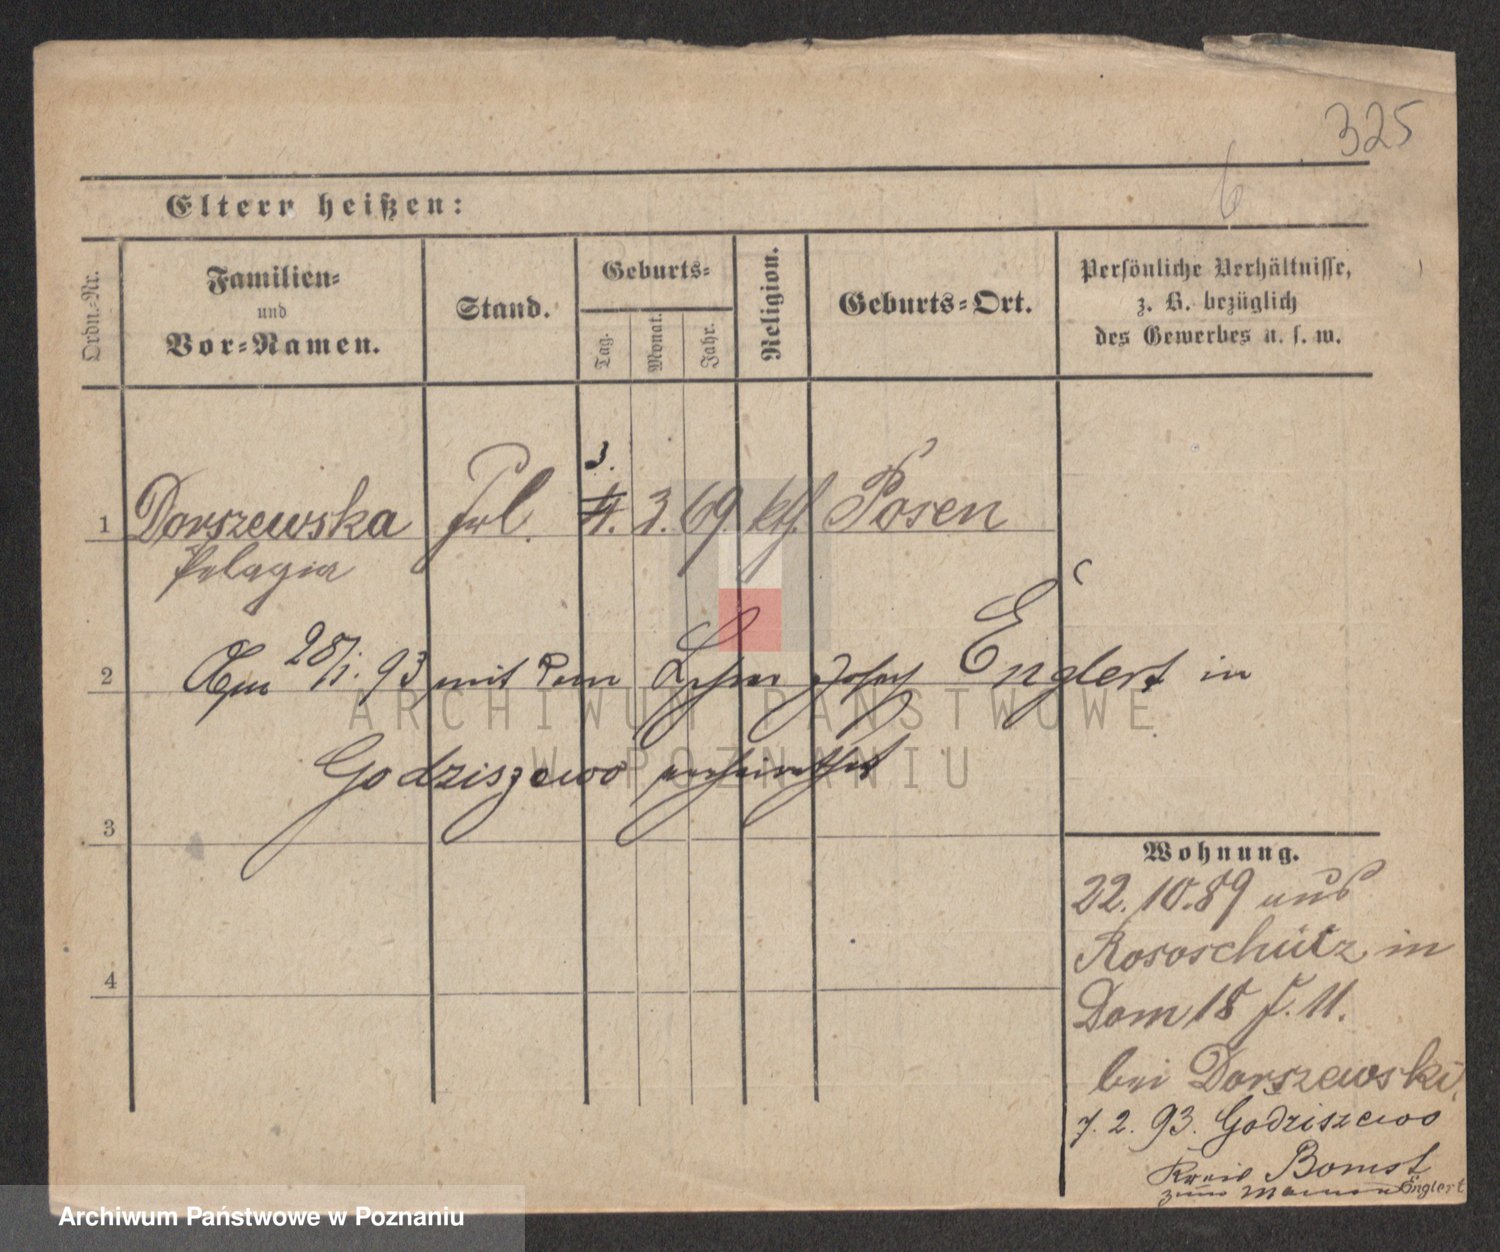 325
6
Eltern heißen:
Ordn.-Nr.
Familien-
und
Vor-Namen.
Stand.
Geburts-
Tag.
Monat.
Jahr.
Religion.
Geburts-Ort.
Persönliche Verhältnisse,
z. B. bezüglich
des Gewerbes u. s. w.
3.
1 Dorszewska Frl. 4. 3. 69 kth. Posen
Pelagia
2 Am 28/1. 93 mit dem Lehrer Josef Englert in
Godziszewo verheirathet
3
4
Wohnung.
22.10.89 aus
Rososchütz in
Dom 18 J. 11.
bei Dorszewski.
7. 2. 93. Godziszewo
Kreis Bomst
zum Manne Englert
ARCHIWUM PAŃSTWOWE
W POZNANIU
Archiwum Państwowe w Poznaniu